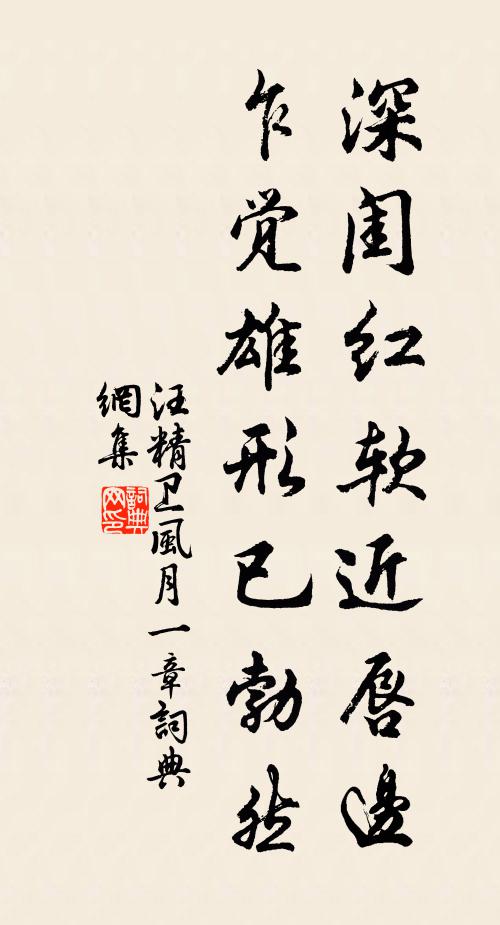 深闺红软近唇邊
乍觉雄形已勃然
汪精卫風月一章詞典
網集
詞典网印